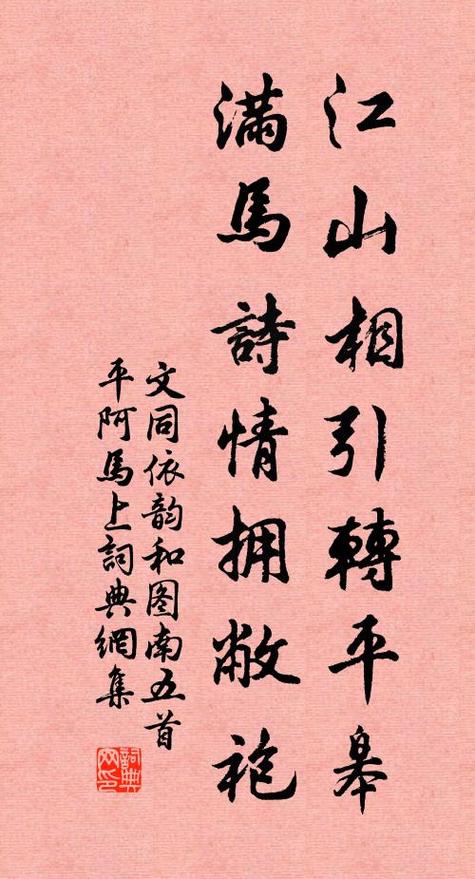 江山相引轉平皋
滿馬詩情拥敝袍
文同依韵和图南五首
平阿馬上詞典網集
詞典网印